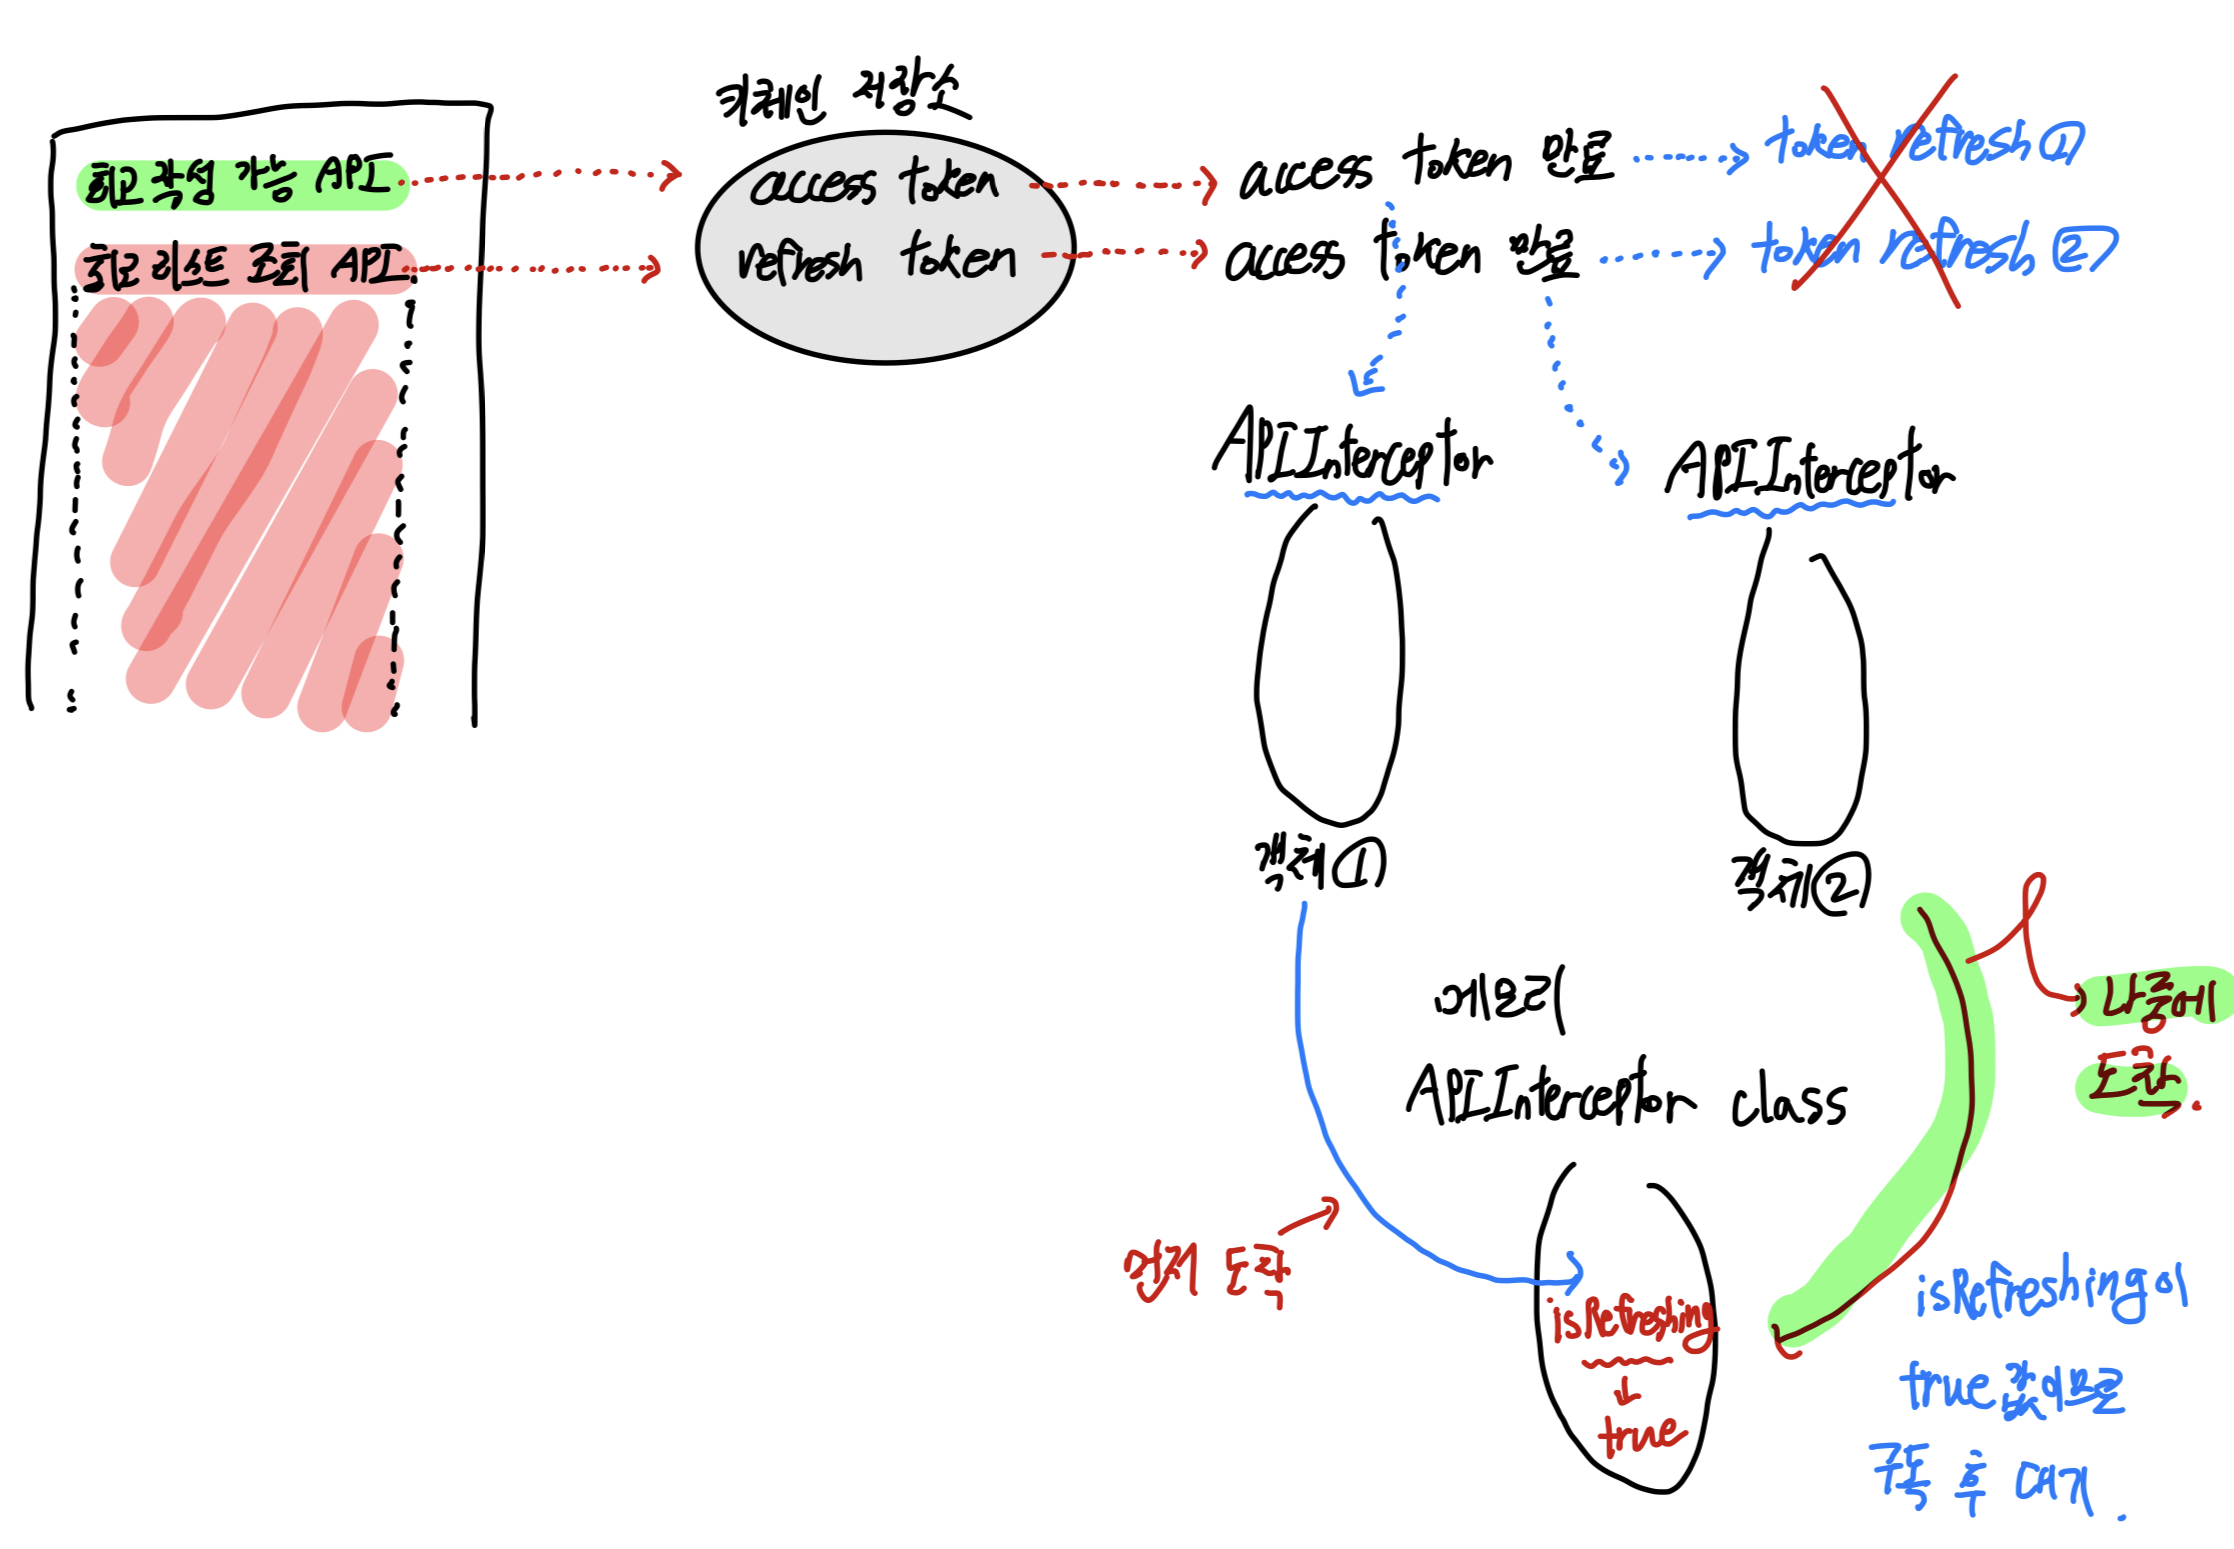 키체인 저장소
회고 작성 가능 API
회고 리스트 조회 API
access token
refresh token
access token 만료
access token 만료
token refresh ①
token refresh ②
APIInterceptor
APIInterceptor
객체 ①
객체 ②
메모리
APIInterceptor class
나중에
도착.
먼저 도착
isRefreshing
true
isRefreshing이
true 값이므로
구독 후 대기.